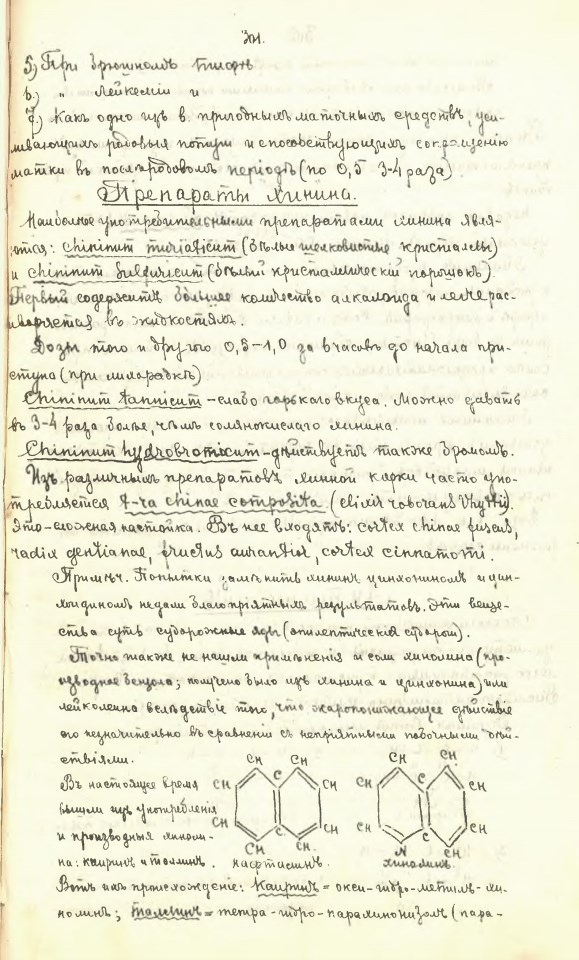 5) При брюшномъ тифѣ
6.) " лейкеміи и
7.) Какъ одно изъ в. пригодныхъ маточныхъ средствъ, уси-
ливающихъ родовыя потуги и способствующихъ сокращенію
матки въ послѣродовомъ періодѣ (по 0,5 3-4 раза)
Препараты хинина.
Наиболѣе употребительными препаратами хинина явля-
ются: chininum muriaticum (бѣлые шелковистые кристаллы)
и chininum sulfuricum (бѣлый кристаллическій порошокъ).
Первый содержитъ большее количество алкалоида и легче рас-
творяется въ жидкостяхъ.
Дозы того и другого 0,5-1,0 за 6 часовъ до начала при-
ступа (при лихорадкѣ)
Chininum tannicum - слабо горькаго вкуса. Можно давать
въ 3-4 раза болѣе, чѣмъ солянокислаго хинина.
Chininum hydrobromicum - дѣйствуетъ также бромомъ.
Изъ различныхъ препаратовъ хинной корки часто упо-
требляется t-ra chinae composita (elixir roborans Whyttii).
Это - сложная настойка. Въ нее входятъ: cortex chinae fuscus,
radix gentianae, fructus aurantior, cortex cinnamomi.
Примѣч. Попытки замѣнить хининъ цинхониномъ и цин-
хонидиномъ не дали благопріятныхъ результатовъ. Эти веще-
ства суть судорожные яды (эпилептическія судороги).
Точно также не нашли примѣненія и соли хинолина (про-
изводное бензола; получено было изъ хинина и цинхонина) или
лейколина вслѣдствіе того, что жаропонижающее дѣйствіе
его незначительно въ сравненіи съ непріятными побочными дѣй-
ствіями.
Въ настоящее время
вышли изъ употребленія
и производныя хиноли-
на: каиринъ и таллинъ.
CH CH CH CH C C CH CH CH CH
нафталинъ.
CH CH CH CH C C CH CH N CH
хинолинъ.
Вотъ ихъ происхожденіе: Каиринъ = окси-гидро-метилъ-хи-
нолинъ; таллинъ = тетра-гидро-парахинонизолъ (пара-